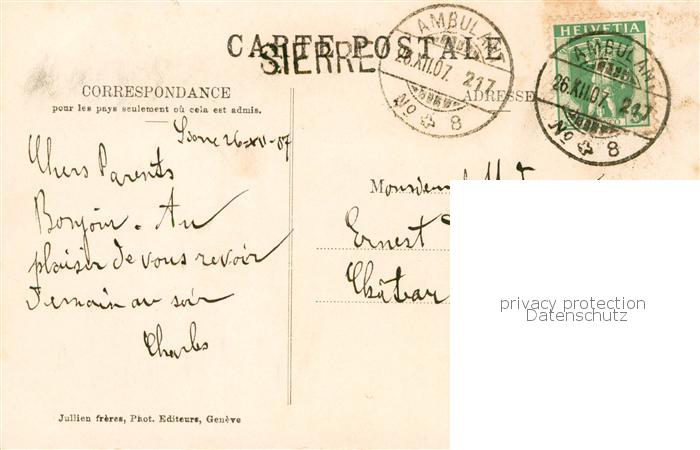 CARTE POSTALE
SIERRE
AMBULANT
26.XII.07. 217
No 8
HELVETIA
AMBULANT
26.XII.07. 217
No 8
CORRESPONDANCE
pour les pays seulement où cela est admis.
ADRESSE
26-XII-07
Chers Parents
Bonjour. Au
plaisir de vous revoir
Demain au soir
Charles
Monsieur
Ernest
Châtar
Jullien frères, Phot. Editeurs, Genève
privacy protection
Datenschutz